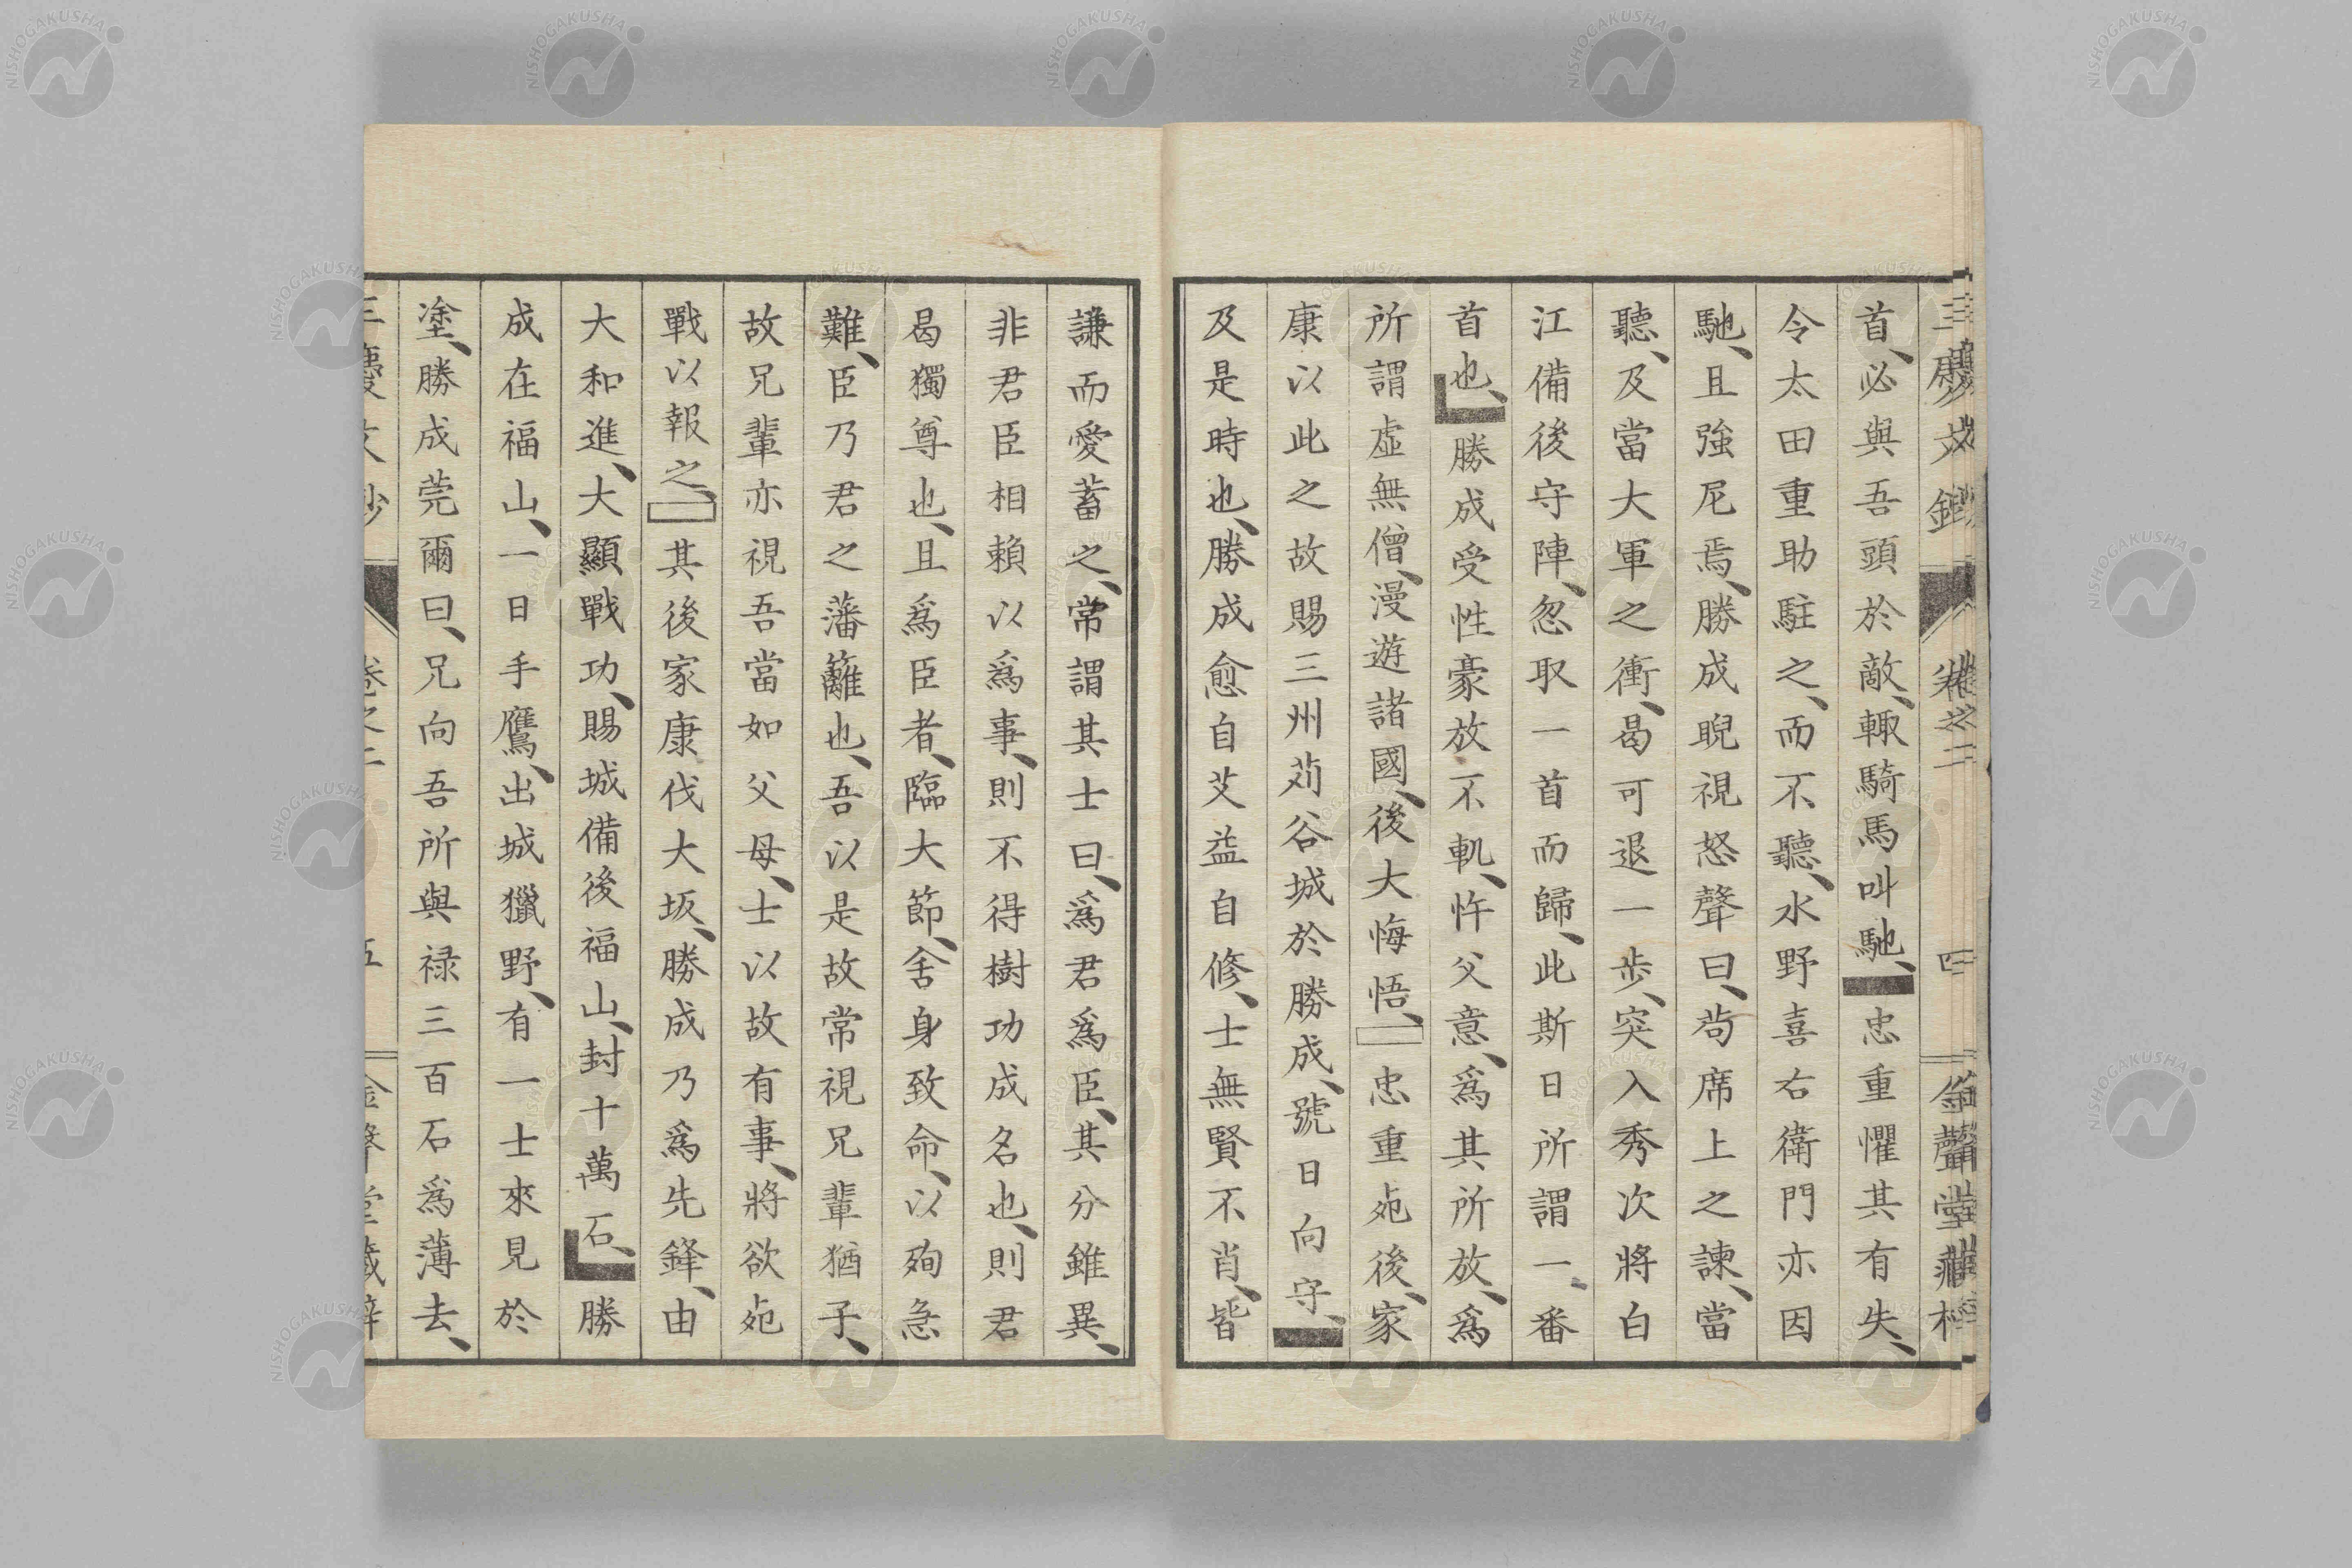 首、必與吾頭於敵、輙騎馬叫馳、忠重懼其有失、
令太田重助駐之、而不聽、水野喜右衛門亦因
馳、且強尼焉、勝成睨視怒聲曰、茍席上之諫、當
聽、及當大軍之衝、曷可退一步、突入秀次將白
江備後守陣、忽取一首而歸、此斯日所謂一番
首也、勝成受性豪放不軌、忤父意、爲其所放、爲
所謂虛無僧、漫遊諸國、後大悔悟、忠重䖏後、家
康以此之故賜三州苅谷城於勝成、號日向守、
及是時也、勝成愈自艾益自修、士無賢不肖、皆
謙而愛蓄之、常謂其士曰、爲君爲臣、其分雖異、
非君臣相賴以爲事、則不得樹功成名也、則君
曷獨尊也、且爲臣者、臨大節、舍身致命、以殉急
難、臣乃君之藩籬也、吾以是故常視兄輩猶子、
故兄輩亦視吾當如父母、士以故有事、將欲
戰以報之、其後家康伐大坂、勝成乃爲先鋒、由
大和進、大顯戰功、賜城備後福山、封十萬石、勝
成在福山、一日手鷹、出城獵野、有一士來見於
塗、勝成莞爾曰、兄向吾所與祿三百石爲薄去、
三慶文鈔 卷之二 四 金聲堂藏梓
三慶文鈔 卷之二 五 金聲堂藏梓
NISHOGAKUSHA